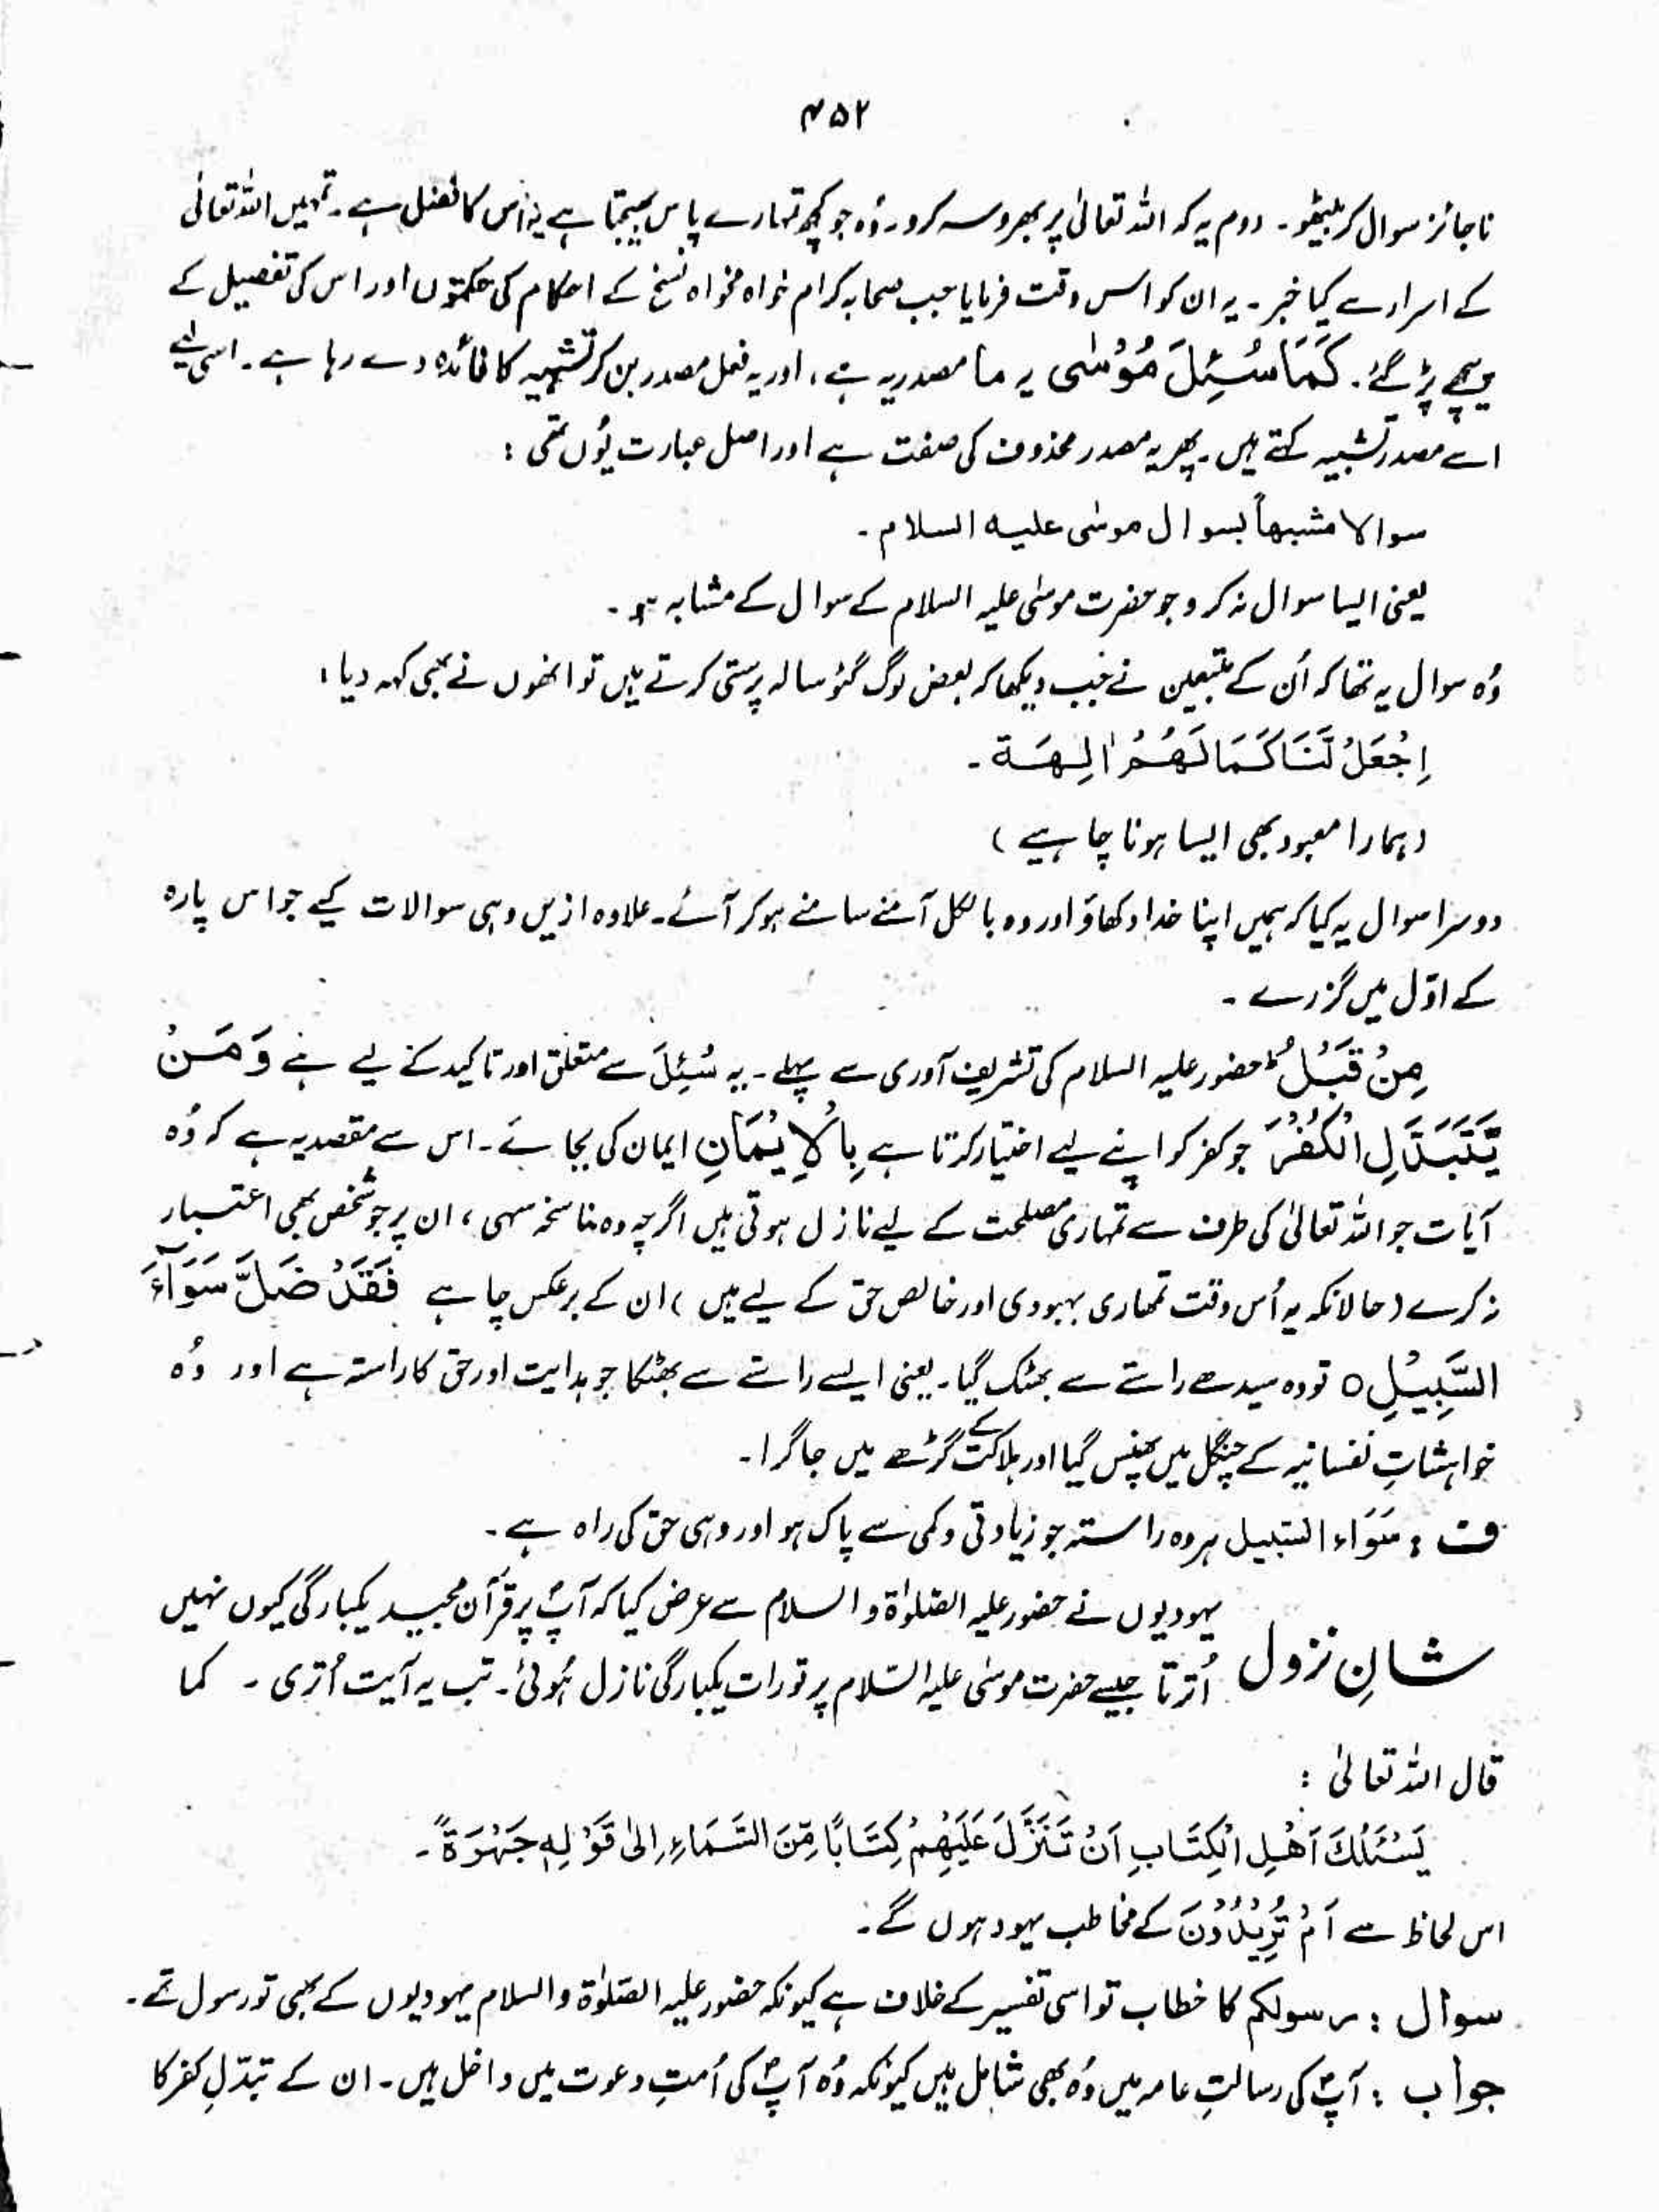 ۴۵۲
ناجائز سوال کر بیٹھو۔ دوم یہ کہ اللہ تعالیٰ پر بھروسہ کرو۔ وُہ جو کچھ تمہارے پاس بھیجتا ہے یہ اُس کا فضل ہے۔ تمہیں اللہ تعالیٰ
کے اسرار سے کیا خبر۔ یہ ان کو اس وقت فرمایا جب صحابہ کرام خواہ مخواہ نسخ کے احکام کی حکمتوں اور اس کی تفصیل کے
پیچھے پڑ گئے۔ كَمَا سُئِلَ مُوْسٰی یہ ما مصدریہ ہے، اور یہ فعل مصدر بن کر تشبیہ کا فائدہ دے رہا ہے۔ اسی لیے
اسے مصدر تشبیہ کہتے ہیں۔ پھر یہ مصدر محذوف کی صفت ہے اور اصل عبارت یُوں تھی :
سوالا مشبھاً بسوال موسٰی علیہ السلام۔
یعنی ایسا سوال نہ کرو جو حضرت موسٰی علیہ السلام کے سوال کے مشابہ ہو۔
وُہ سوال یہ تھا کہ اُن کے متبعین نے جب دیکھا کہ بعض لوگ گئو سالہ پرستی کرتے ہیں تو انھوں نے بھی کہہ دیا :
اِجْعَلْ لَّنَا كَمَا لَهُمْ اٰلِهَة۔
(ہمارا معبود بھی ایسا ہونا چاہیے)
دوسرا سوال یہ کیا کہ ہمیں اپنا خدا دکھاؤ اور وہ بالکل آمنے سامنے ہو کر آئے۔ علاوہ ازیں وہی سوالات کیے جو اس پارہ
کے اوّل میں گزرے۔
مِنْ قَبْلُ ؕ حضور علیہ السلام کی تشریف آوری سے پہلے۔ یہ سُئِلَ سے متعلق اور تاکید کے لیے ہے وَ مَنْ
يَّتَبَدَّلِ الْكُفْرَ جو کفر کو اپنے لیے اختیار کرتا ہے بِالْاِيْمَانِ ایمان کی بجائے۔ اس سے مقصد یہ ہے کہ وُہ
آیات جو اللہ تعالیٰ کی طرف سے تمہاری مصلحت کے لیے نازل ہوتی ہیں اگرچہ وہ ناسخہ سہی، ان پر جو شخص بھی اعتبار
نہ کرے (حالانکہ یہ اُس وقت تمھاری بہبودی اور خالص حق کے لیے ہیں) ان کے برعکس چاہے فَقَدْ ضَلَّ سَوَآءَ
السَّبِيْلِ ○ تو وہ سیدھے راستے سے بھٹک گیا۔ یعنی ایسے راستے سے بھٹکا جو ہدایت اور حق کا راستہ ہے اور وُہ
خواہشاتِ نفسانیہ کے چنگل میں پھنس گیا اور ہلاکت کے گڑھے میں جا گرا۔
ف : سَوَاء السّبیل ہر وہ راستہ جو زیادتی و کمی سے پاک ہو اور وہی حق کی راہ ہے۔
شانِ نزول یہودیوں نے حضور علیہ الصّلوٰۃ و السلام سے عرض کیا کہ آپؐ پر قرآن مجید یکبارگی کیوں نہیں
اُترتا جیسے حضرت موسٰی علیہ السّلام پر تورات یکبارگی نازل ہُوئی۔ تب یہ آیت اُتری۔ کما
قال اللہ تعالیٰ :
يَسْئَلُكَ اَهْلِ الْكِتَابِ اَنْ تَنَزَّلَ عَلَيْهِمْ كِتَابًا مِّنَ السَّمَاءِ اِلٰی قَوْلِهٖ جَهْرَةً۔
اس لحاظ سے اَمْ تُرِيْدُوْنَ کے مخاطب یہود ہوں گے۔
سوال : رسولکم کا خطاب تو اسی تفسیر کے خلاف ہے کیونکہ حضور علیہ الصّلوٰۃ والسلام یہودیوں کے بھی تو رسول تھے۔
جواب : آپؐ کی رسالتِ عامہ میں وُہ بھی شامل ہیں کیونکہ وُہ آپؐ کی اُمتِ دعوت میں داخل ہیں۔ ان کے تبدّلِ کفر کا